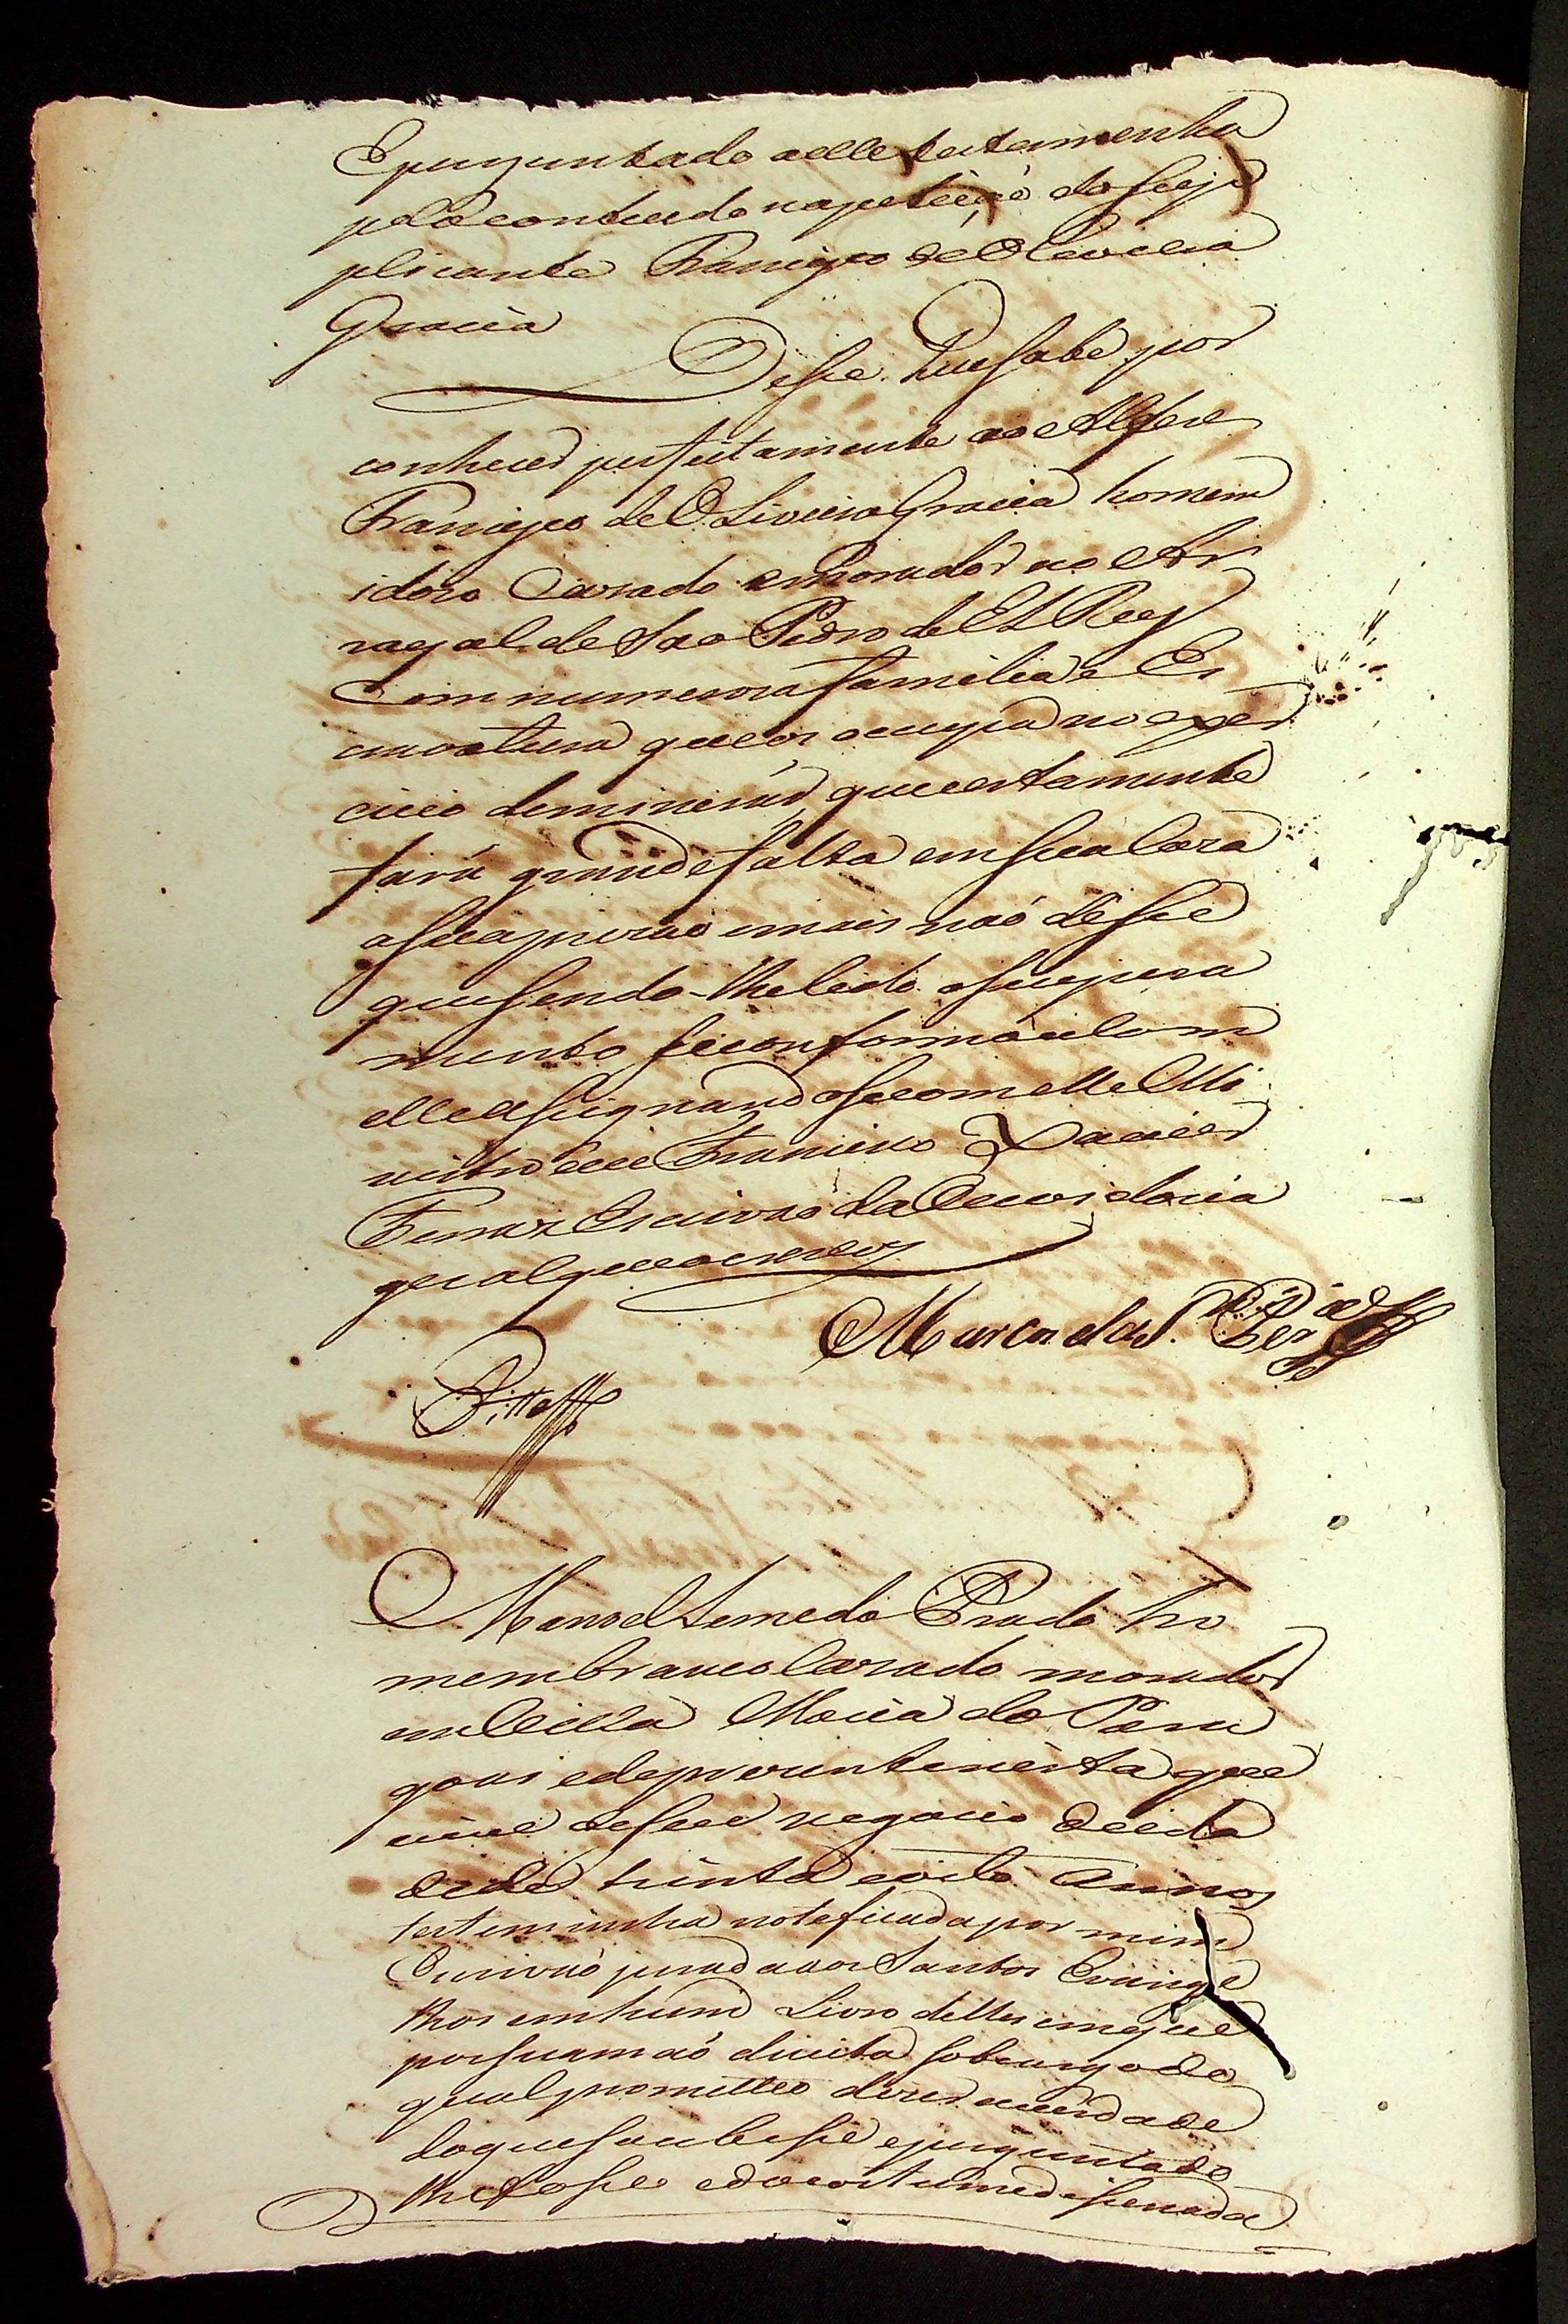 Eperguntado aelle testemunha
pelo contheudo napetiçaõ do Sup
plicante Francisco de Oliveira
Gracia
Disse Quesabe por
conhecer perfeitamente ao Alferes
Francisco de Oliveira Gracia homem
idozo Cazado emorador no Ar
rayal de Sao Pedro de El Rey
Com numerosa familia e Es
cravatura que os ocupa no exer
cicio de minerar, que certamente
fará grande falta em sua Caza
asua prizaõ emais naõ disse
que sendo-lhe lido oseu jura
mento seconformou com
elle asignando se com elle Mi
nistro eeu Francisco Xavier
Ferraz Escrivaõ da Ouvidoria
geral que oescrevy
Pitta
Manoel Leme do Prado ho
mem branco Cazado morador
em Villa Maria do Para
goai e deprezente nesta que
vive deseu negocio de ida
de de trinta e oito Annos
testeminha noteficada por mim
Escrivaõ jurada aos Santos Evange
lhos em hum Livro delles em que
por sua maõ direita sob cargo do
qual prometteo dizer averdade
do que soubesse e perguntado
lhe fosse e do costume disse nada